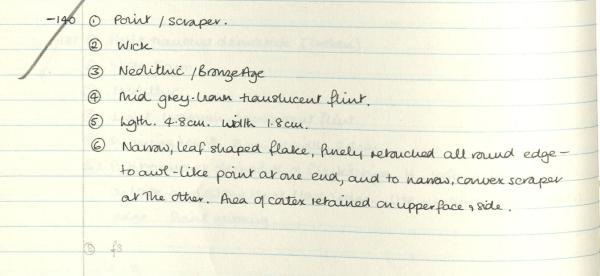 -140 ① Point / scraper.
② Wick
③ Neolithic / Bronze Age
④ Mid grey-brown translucent flint.
⑤ Lgth. 4.8cm. Width 1.8cm.
⑥ Narrow, leaf shaped flake, finely retouched all round edge –
to awl-like point at one end, and to narrow, convex scraper
at the other. Area of cortex retained on upper face & side.
① f3